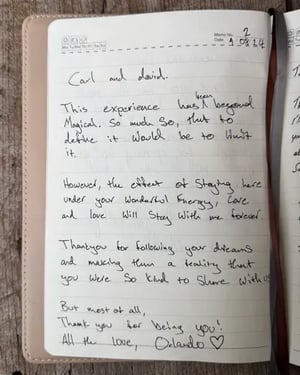 Memo No. 2
Mo Tu We Th Fr Sa Su
Date
Carl and david.
been
This experience has beyond
Magical. So much so, that to
define it would be to limit
it.
However, the effect of Staying here
under your Wonderful Energy, Care
and love Will Stay With me forever.
Thankyou for following your dreams
and making them a reality that
you were So kind to Share with us
But most of all,
Thank you for being you!
All the love, Orlando ♡